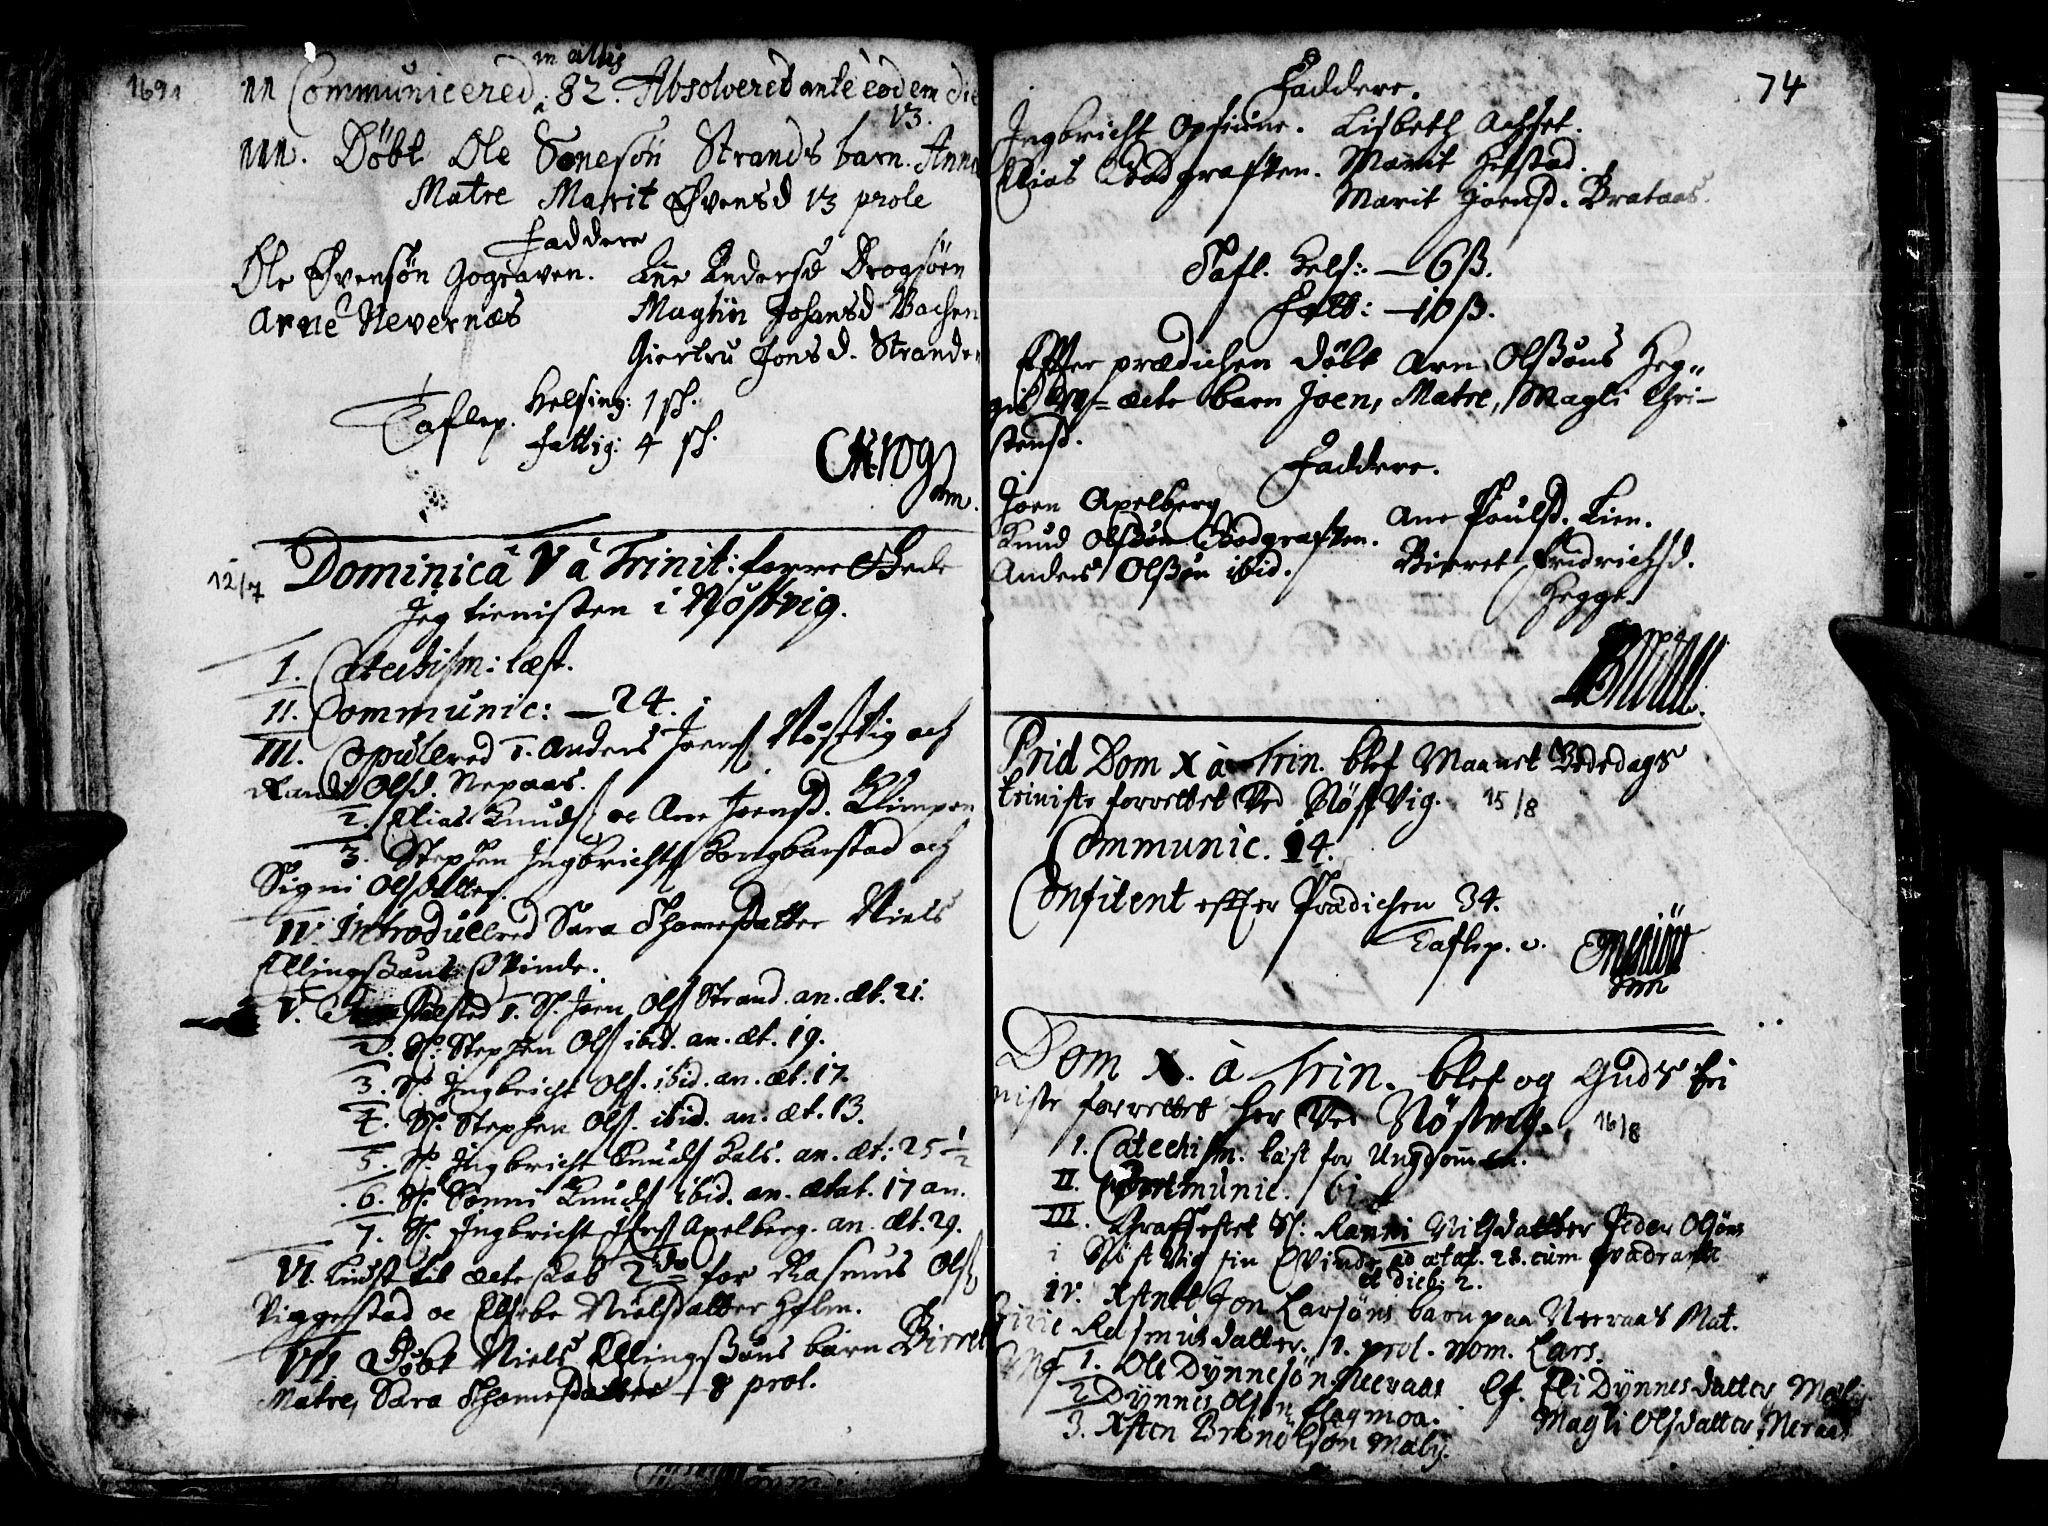 1691
in altis
nn Communicered, 82. Absolveret ante eodem die
13.
nnn. Döbt Ole Sonesön Strands barn. Anne
Matre Marit Evensd 13 prole
Faddere
Ole Evensön Gograven. Ane Andersd Drogsöen
Arne Nevernæs Magliin Johansd Bachen
Giertru Jonsd. Stranden
Taflep. Helsing: 1 sh.
fattig: 4 sh.
Krog
12/7 Dominica V à Trinit: forrettede
Jeg tienisten i Nöstvig.
I. Catechism: læst.
II. Communic: — 24.
III. Copulered 1. Anders Joens Nöstvig och
Randi Olsd. Nepaas.
2. Elias Knuds oc Ane Joensd. Klimpen
3. Stephen Ingbrichts Kongbarstad och
Signi Olsdatter.
IV. Introducered Sara Thomesdatter Niels
Ellingsöns Qvinde.
V. sted 1. S. Joen Ols Strand. an. æt. 21.
2. S. Stephen Ols ibid. an. æt. 19.
3. S. Ingbricht Ols. ibid. an. æt. 17.
4. S. Stephen Ols. ibid. an. æt. 13.
5. S. Ingbricht Knuds Hals. an. æt: 25 1/2
6. S. Sonni Knuds ibid. an. ætat. 17 an.
7. S. Ingbricht Apelberg. an. æt. 29.
VI. Liust til ecteskab 2do for Rasmus Ols
Viggestad oc Elsebe Nielsdatter Holm.
VII Döbt Niels Ellingsöns barn Birret
Matre, Sara Thomesdatter 8 prol.
74
Faddere.
Ingbricht Opsiune. Lisbeth Achset.
Elias Godgraften. Marit Hofstad.
Marit Joensd. Brataas.
Tafl. Hels: — 6 ß.
Fatt: — 10 ß.
Effter prædichen döbt Arn Olsöns Heg-
gil U-ecte barn Joen, Matre, Magli Chri-
stensd.
Faddere.
Joen Apelberg Ane Poulsd. Lien.
Knud Olsön Godgraften. Birret Fridrichsd.
Anders Olsön ibid. Hegge.
Prid Dom X à Trin. blef Maanet Bededags
teniste forrettet Ved NöstVig. 15/8
Communic. 14.
Confitent effter Prædichen 34.
Taflep. 0.
Dom X. à Trin. blef og Guds tie
niste forrettet her Ved Nöstvig. 16/8
1. Catechism. læst for Ungdommen.
II. Communic. 61
III. Graffestet S: Ranni Nilsdatter Peder Olsöns
i NöstVig sin Qvinde ætat. 28. cum qvadrante
et dieb: 2.
IV. Xstnet Jon Larsöns barn paa Neeraas Mat.
Giric Rasmusdatter. 1. prol. nom. Lars.
1. Ole Dynnesön Neeraas Ef. Eli Dynnesdatter Malÿ
2 Dynnes Olsön flagmoa. Magli Olsdatter Neraas
3. Xsten Brönelsön Malÿ.